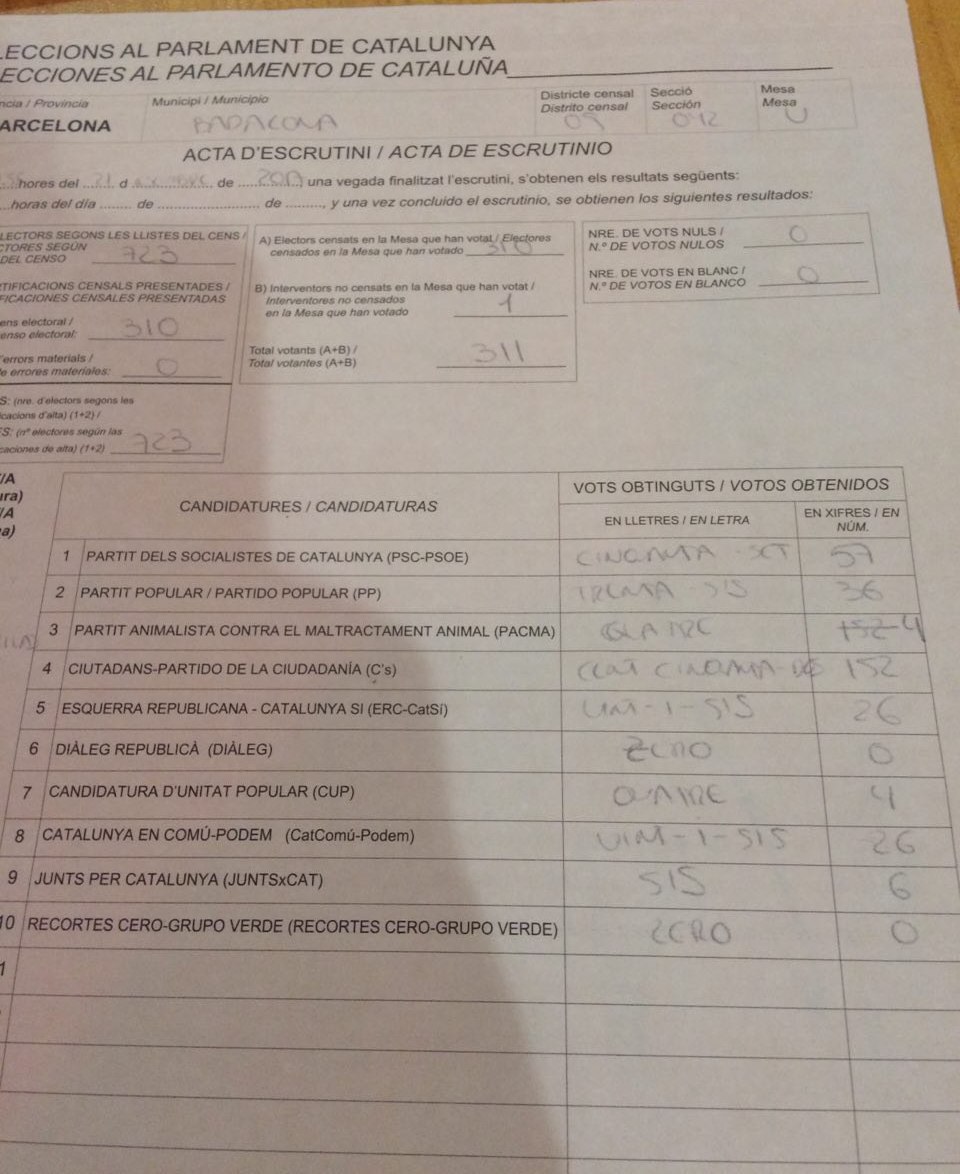 LECCIONS AL PARLAMENT DE CATALUNYA
ECCIONES AL PARLAMENTO DE CATALUÑA
ncia / Provincia
ARCELONA
Municipi / Municipio
BADALONA
Districte censal
Distrito censal
09
Secció
Sección
Mesa
Mesa
U
ACTA D'ESCRUTINI / ACTA DE ESCRUTINIO
hores del 21 d de 2017 una vegada finalitzat l'escrutini, s'obtenen els resultats següents:
horas del día de de , y una vez concluido el escrutinio, se obtienen los siguientes resultados:
LECTORS SEGONS LES LLISTES DEL CENS /
CTORES SEGÚN
DEL CENSO 723
TIFICACIONS CENSALS PRESENTADES /
FICACIONES CENSALES PRESENTADAS
ens electoral /
enso electoral: 310
'errors materials /
e errores materiales: 0
S: (nre. d'electors segons les
icacions d'alta) (1+2) /
ES: (nº electores según las
caciones de alta) (1+2) 723
A) Electors censats en la Mesa que han votat / Electores
censados en la Mesa que han votado 310
B) Interventors no censats en la Mesa que han votat /
Interventores no censados
en la Mesa que han votado 1
Total votants (A+B) /
Total votantes (A+B) 311
NRE. DE VOTS NULS /
N.º DE VOTOS NULOS 0
NRE. DE VOTS EN BLANC /
N.º DE VOTOS EN BLANCO 0
/A
ura)
/A
a)
CANDIDATURES / CANDIDATURAS
VOTS OBTINGUTS / VOTOS OBTENIDOS
EN LLETRES / EN LETRA
EN XIFRES / EN
NÚM.
1 PARTIT DELS SOCIALISTES DE CATALUNYA (PSC-PSOE) CINQANTA SET 57
2 PARTIT POPULAR / PARTIDO POPULAR (PP) TRENTA SIS 36
3 PARTIT ANIMALISTA CONTRA EL MALTRACTAMENT ANIMAL (PACMA) 152 4
4 CIUTADANS-PARTIDO DE LA CIUDADANÍA (C's) CENT CINQANTA-DOS 152
5 ESQUERRA REPUBLICANA - CATALUNYA SI (ERC-CatSí) VINT-I-SIS 26
6 DIÀLEG REPUBLICÀ (DIÀLEG) ZERO 0
7 CANDIDATURA D'UNITAT POPULAR (CUP) QUATRE 4
8 CATALUNYA EN COMÚ-PODEM (CatComú-Podem) VINT-I-SIS 26
9 JUNTS PER CATALUNYA (JUNTSxCAT) SIS 6
10 RECORTES CERO-GRUPO VERDE (RECORTES CERO-GRUPO VERDE) ZERO 0
1